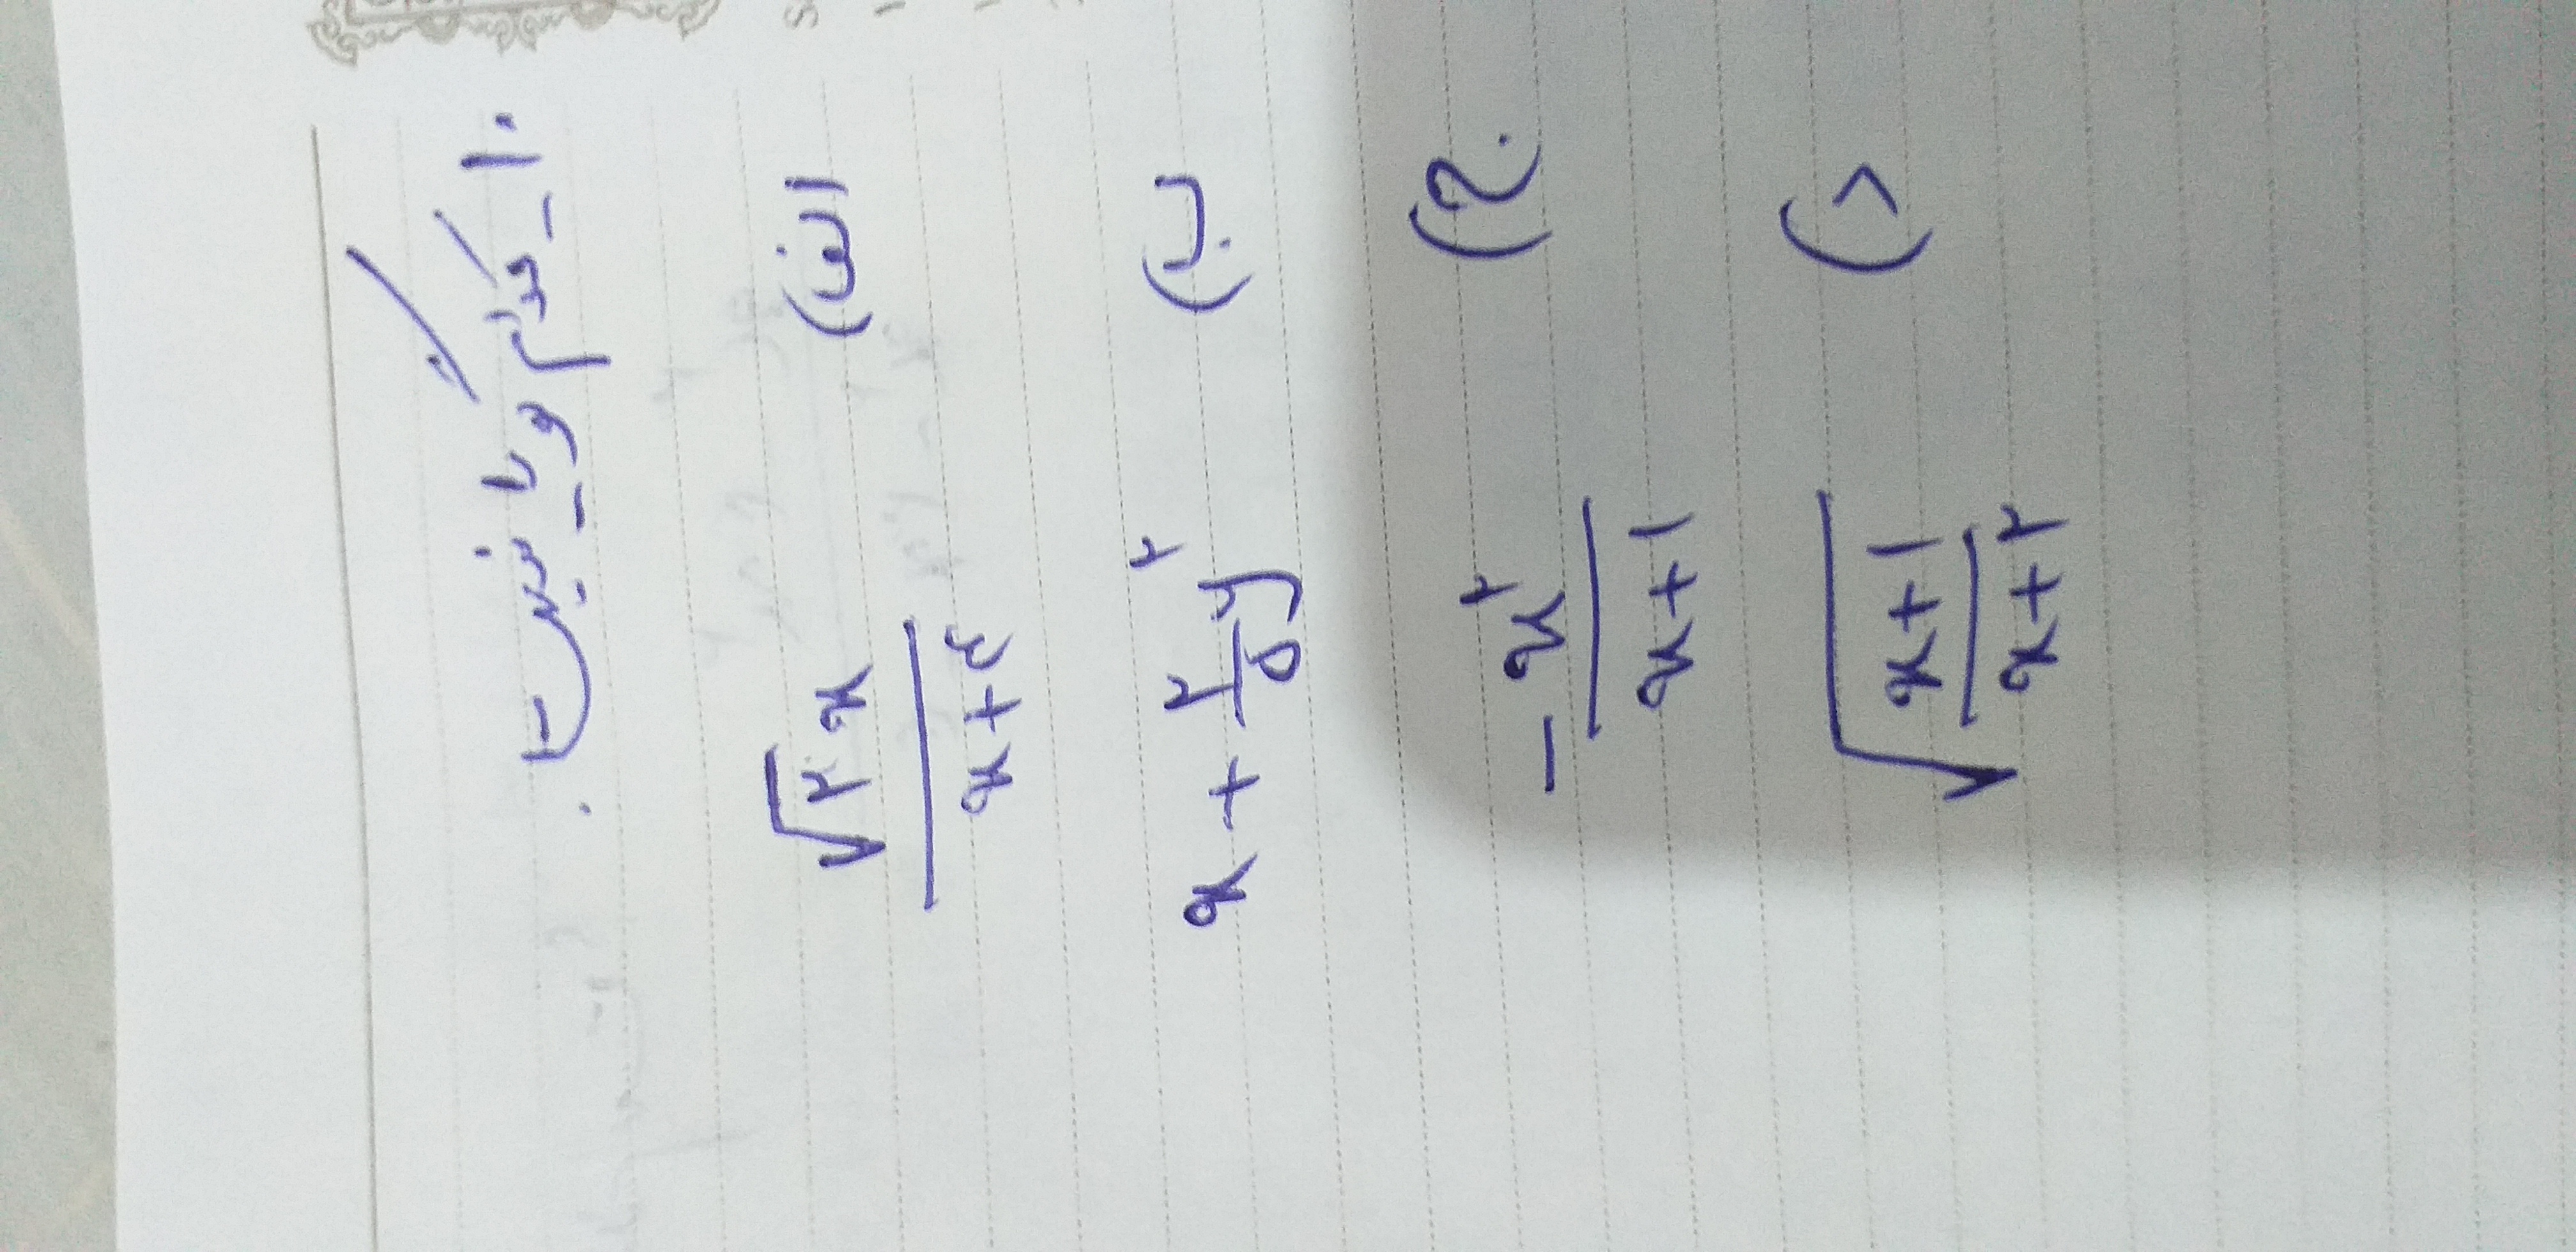 ۱۰ـ کدام گویا نیست.
الف) √۲ x / x+۴
ب) x + ۲/۵ y^۲
ج) -x^۲ / x+۱
د) √(x+۱ / x+۲)